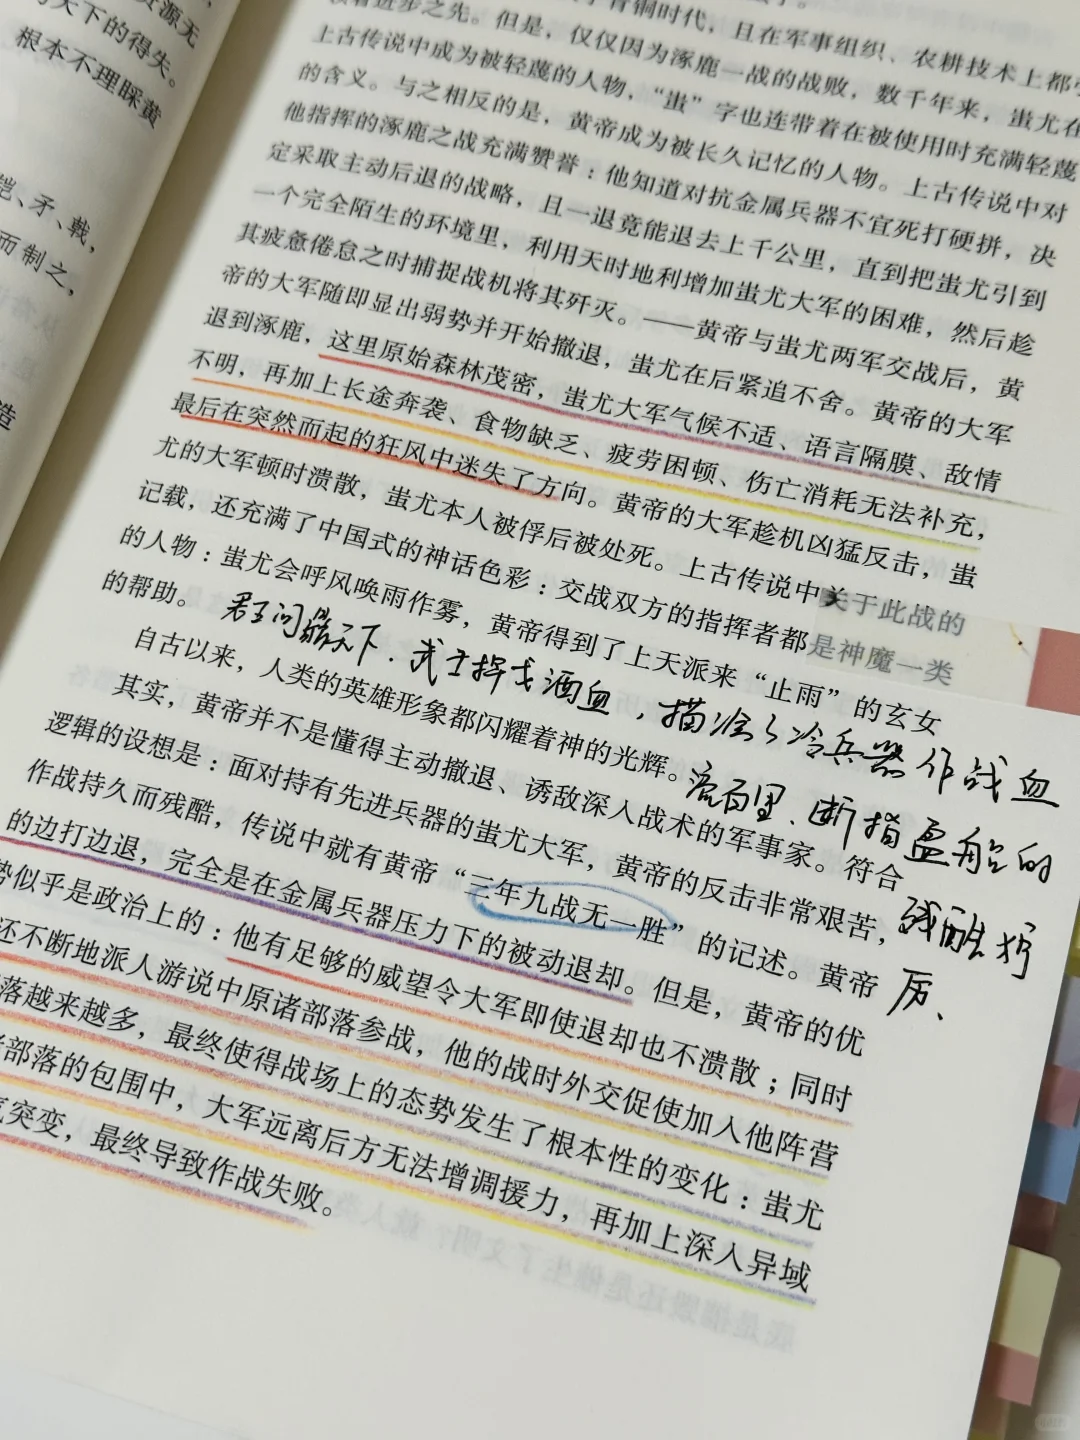 资源无
天下的得失。
根本不理睬黄
铠、矛、戟,
而制之,
造
青铜时代,且在军事组织、农耕技术上都
着进步之先。但是,仅仅因为涿鹿一战的战败,数千年来,蚩尤在
上古传说中成为被轻蔑的人物,“蚩”字也连带着在被使用时充满轻蔑
的含义。与之相反的是,黄帝成为被长久记忆的人物。上古传说中对
他指挥的涿鹿之战充满赞誉:他知道对抗金属兵器不宜死打硬拼,决
定采取主动后退的战略,且一退竟能退去上千公里,直到把蚩尤引到
一个完全陌生的环境里,利用天时地利增加蚩尤大军的困难,然后趁
其疲惫倦怠之时捕捉战机将其歼灭。——黄帝与蚩尤两军交战后,黄
帝的大军随即显出弱势并开始撤退,蚩尤在后紧追不舍。黄帝的大军
退到涿鹿,这里原始森林茂密,蚩尤大军气候不适、语言隔膜、敌情
不明,再加上长途奔袭、食物缺乏、疲劳困顿、伤亡消耗无法补充,
最后在突然而起的狂风中迷失了方向。黄帝的大军趁机凶猛反击,蚩
尤的大军顿时溃散,蚩尤本人被俘后被处死。上古传说中关于此战的
记载,还充满了中国式的神话色彩:交战双方的指挥者都是神魔一类
的人物:蚩尤会呼风唤雨作雾,黄帝得到了上天派来“止雨”的玄女
的帮助。
君王问鼎天下.武士挥戈洒血,描淮了冷兵器作战血
流百里、断指盈船的
残酷狞
厉、
自古以来,人类的英雄形象都闪耀着神的光辉。
其实,黄帝并不是懂得主动撤退、诱敌深入战术的军事家。符合
逻辑的设想是:面对持有先进兵器的蚩尤大军,黄帝的反击非常艰苦,
作战持久而残酷,传说中就有黄帝“三年九战无一胜”的记述。黄帝
的边打边退,完全是在金属兵器压力下的被动退却。但是,黄帝的优
势似乎是政治上的:他有足够的威望令大军即使退却也不溃散;同时
还不断地派人游说中原诸部落参战,他的战时外交促使加入他阵营
落越来越多,最终使得战场上的态势发生了根本性的变化:蚩尤
部落的包围中,大军远离后方无法增调援力,再加上深入异域
突变,最终导致作战失败。